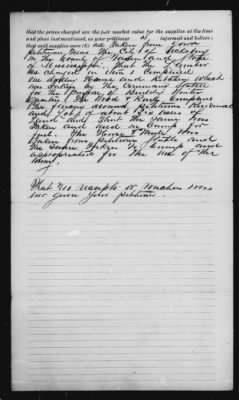 that the prices charged are the fair market value for the supplies at the time
and place last mentioned, as your petitioner is informed and believes;
that said supplies were all taken from your
petitioner, near the City of Vicksburg
in the County of Warren and State
of Mississippi. That the Lumber
as charged in item 1 comprised
one double frame and kitchen which
was taken by the Command
for the Purpose of Winter
Quarters. The Wood & Rails comprised
the fences around petitioners
and lot of about six acres of
land and that the same was
taken and used in Camp for
fuel. The Horse & Mule was
taken from petitioners stable and
the Sugar taken to Camp and
appropriated for the use of the
Army.
That no receipt or voucher was
ever given your petitioner.